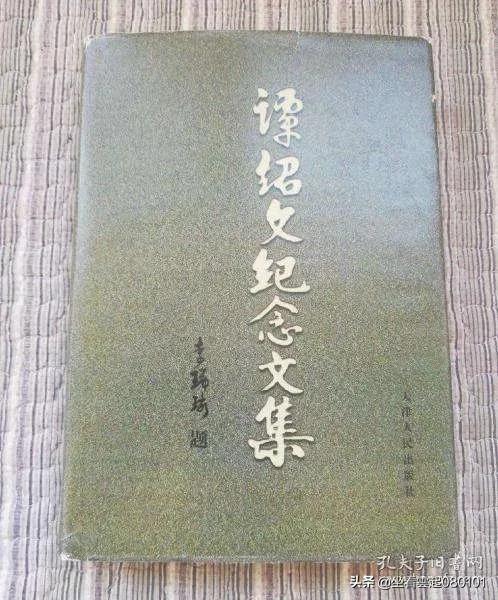 谭绍文纪念文集
李瑞环 题
天津人民出版社
孔夫子旧书网
头条 @坐看雲起080101